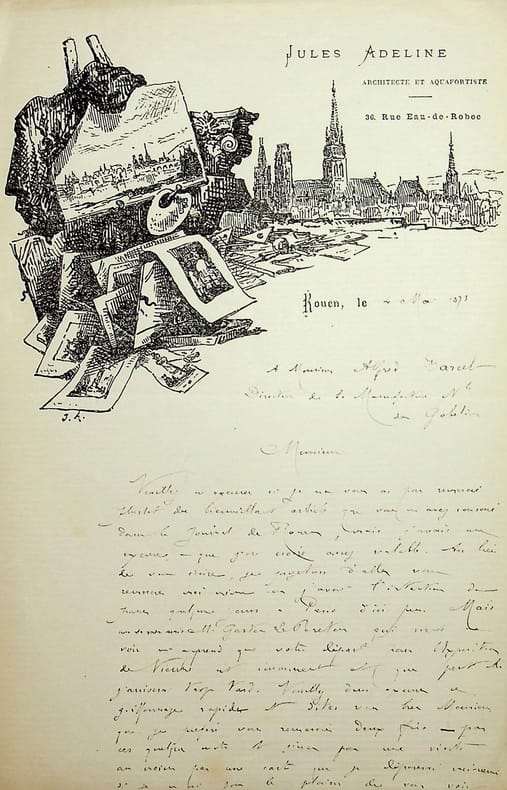 JULES ADELINE
ARCHITECTE ET AQUAFORTISTE
36. Rue Eau-de-Robec
Rouen, le 4 Mai 1873
A Monsieur Alfred Darcel
Directeur de la Manufacture Nle
des Gobelins
Monsieur
Veuillez m'excuser si je ne vous ai pas remercié
plutôt du bienveillant article que vous m'avez consacré
dans le Journal de Rouen, mais j'avais une
excuse – que j'ose croire assez valable. Au lieu
de vous écrire, je
remercier car j'avais l'intention de
passer quelques jours à Paris d'ici peu. Mais
Mr Gaston Le Breton qui vient me
voir m'apprend que votre départ pour l'Exposition
de Vienne est imminent et que peut-être
j'arriverai trop tard. Veuillez donc excuser ce
griffonnage rapide et
que je préfère vous remercier deux fois – par
ces quelques mots et sinon par une visite
au moins par une carte que je déposerai
si je n'ai pas le plaisir de vous voir
J. A.